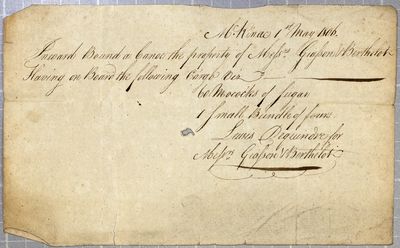 McKinac 1st May 1806.
Inward Bound a Canoe the property of Messrs. Grassen & Berthelot
Having on Board the following Cargo Viz
60 Mococks of Sugar
1 Small Bundle of furs.
Louis Dequindre for
Messrs. Grassen & Berthelot